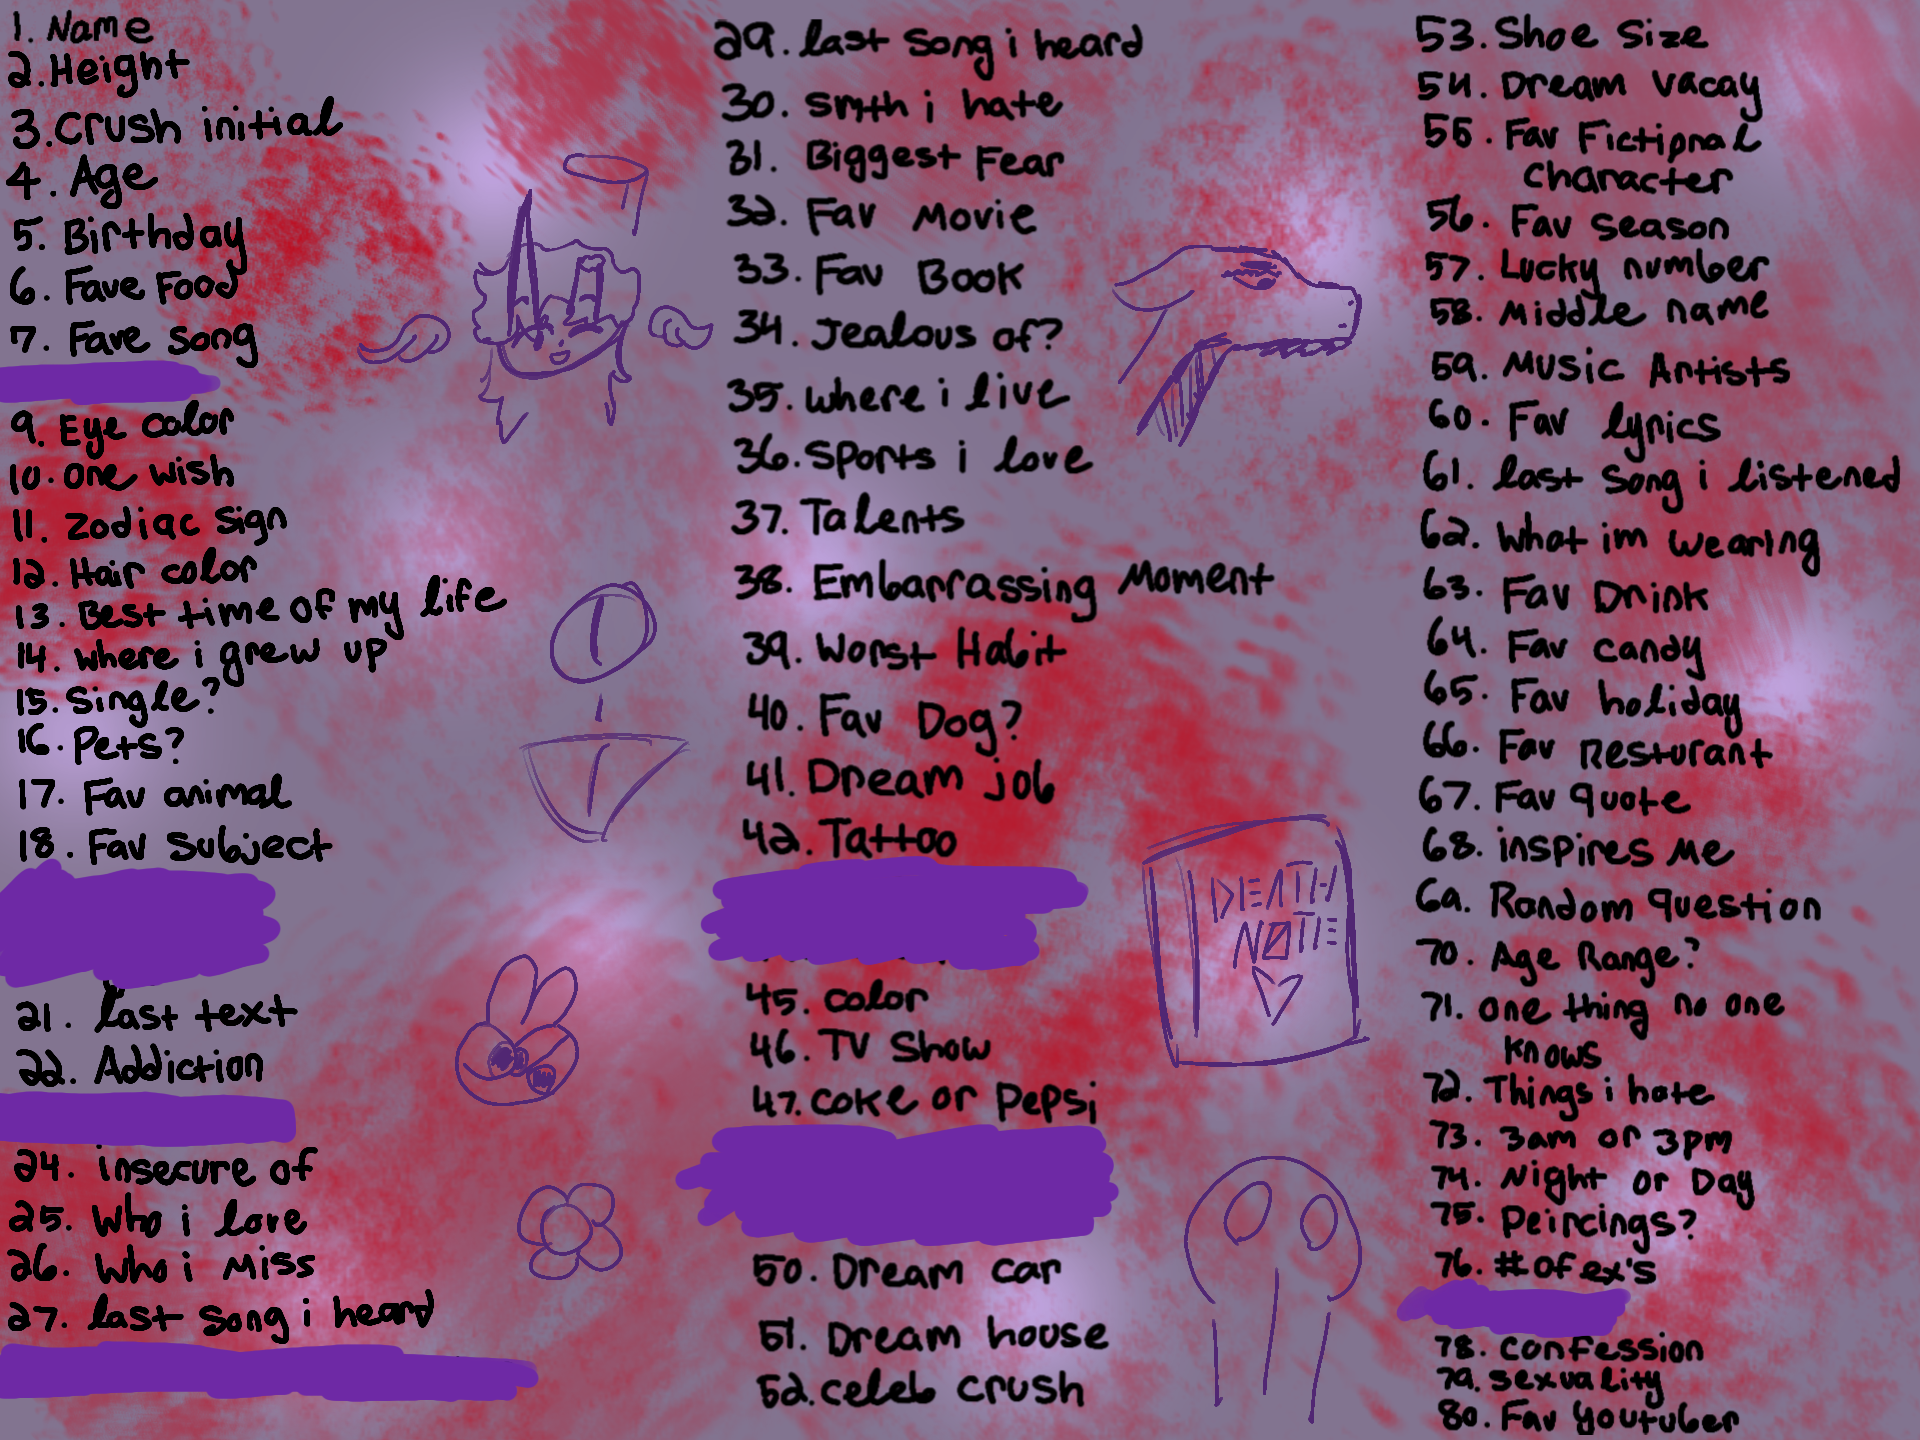 1. Name
2. Height
3. Crush initial
4. Age
5. Birthday
6. Fave Food
7. Fave song
9. Eye color
10. one wish
11. zodiac sign
12. Hair color
13. Best time of my life
14. where i grew up
15. single?
16. Pets?
17. Fav animal
18. Fav subject
21. last text
22. Addiction
24. insecure of
25. Who i love
26. Who i Miss
27. last song i heard
29. last song i heard
30. smth i hate
31. Biggest Fear
32. Fav Movie
33. Fav Book
34. Jealous of?
35. where i live
36. sports i love
37. Talents
38. Embarrassing Moment
39. Worst Habit
40. Fav Dog?
41. Dream job
42. Tattoo
45. color
46. TV Show
47. coke or Pepsi
50. Dream car
51. Dream house
52. celeb crush
DEATH
NOTE
53. Shoe Size
54. Dream vacay
55. Fav Fictional
Character
56. Fav season
57. Lucky number
58. Middle name
59. Music Artists
60. Fav lyrics
61. last song i listened
62. What im wearing
63. Fav Drink
64. Fav candy
65. Fav holiday
66. Fav Resturant
67. Fav quote
68. inspires Me
69. Random question
70. Age Range?
71. one thing no one
knows
72. Things i hate
73. 3am or 3pm
74. Night or Day
75. Peircings?
76. # of ex's
78. confession
79. sexuality
80. Fav youtuber